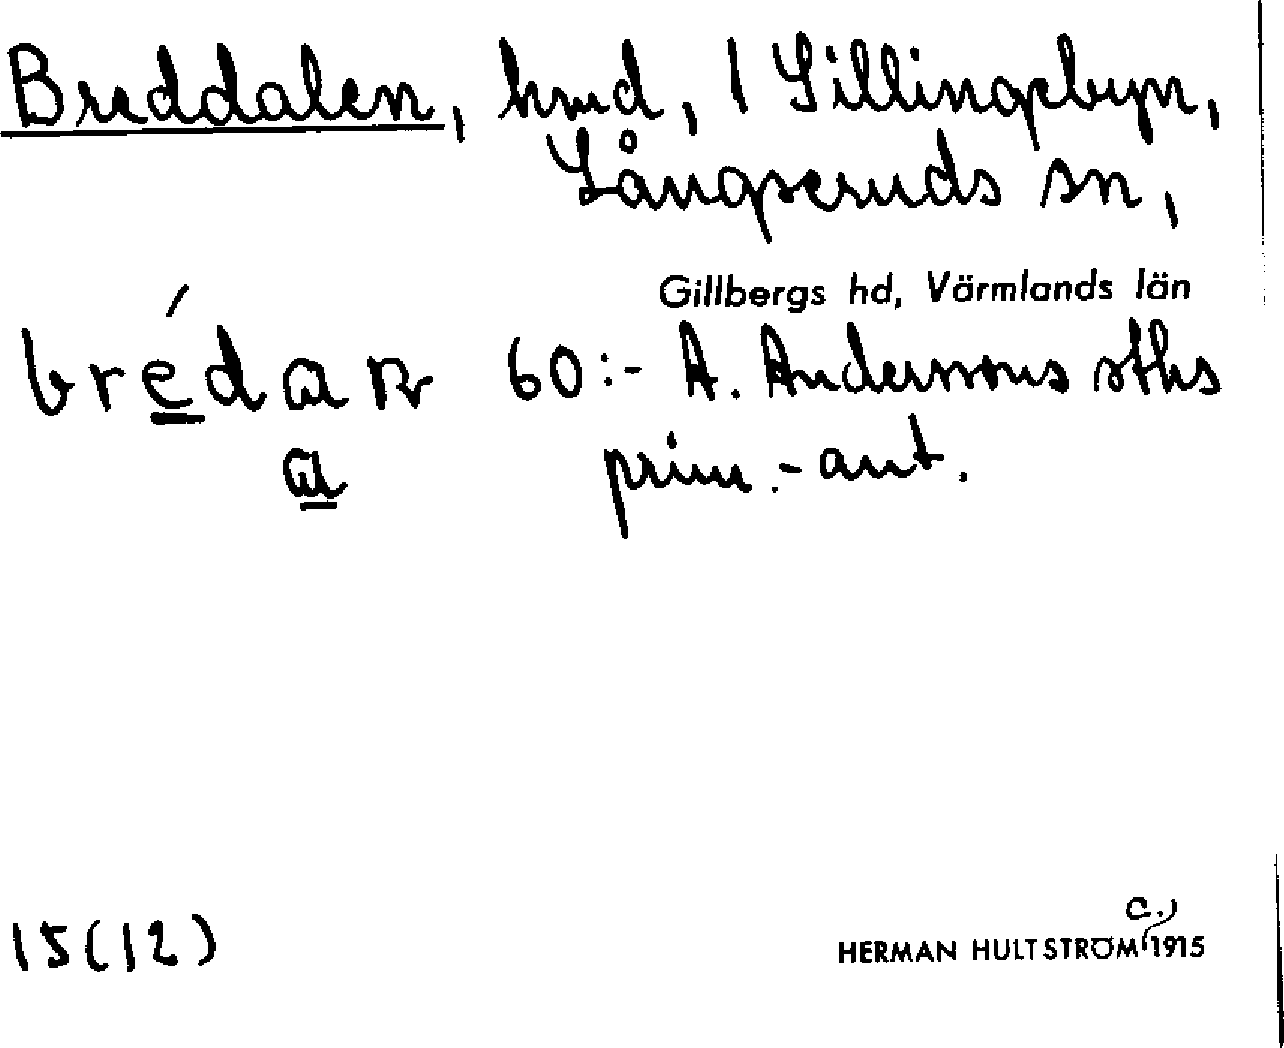 Breddalen, hmd, 1 Sillingebyn,
Långseruds sn,
Gillbergs hd, Värmlands län
brédaɴ 60:- A. Anderssons sths
a prim.-ant.
15(12)
c.,
HERMAN HULTSTRÖM 1915